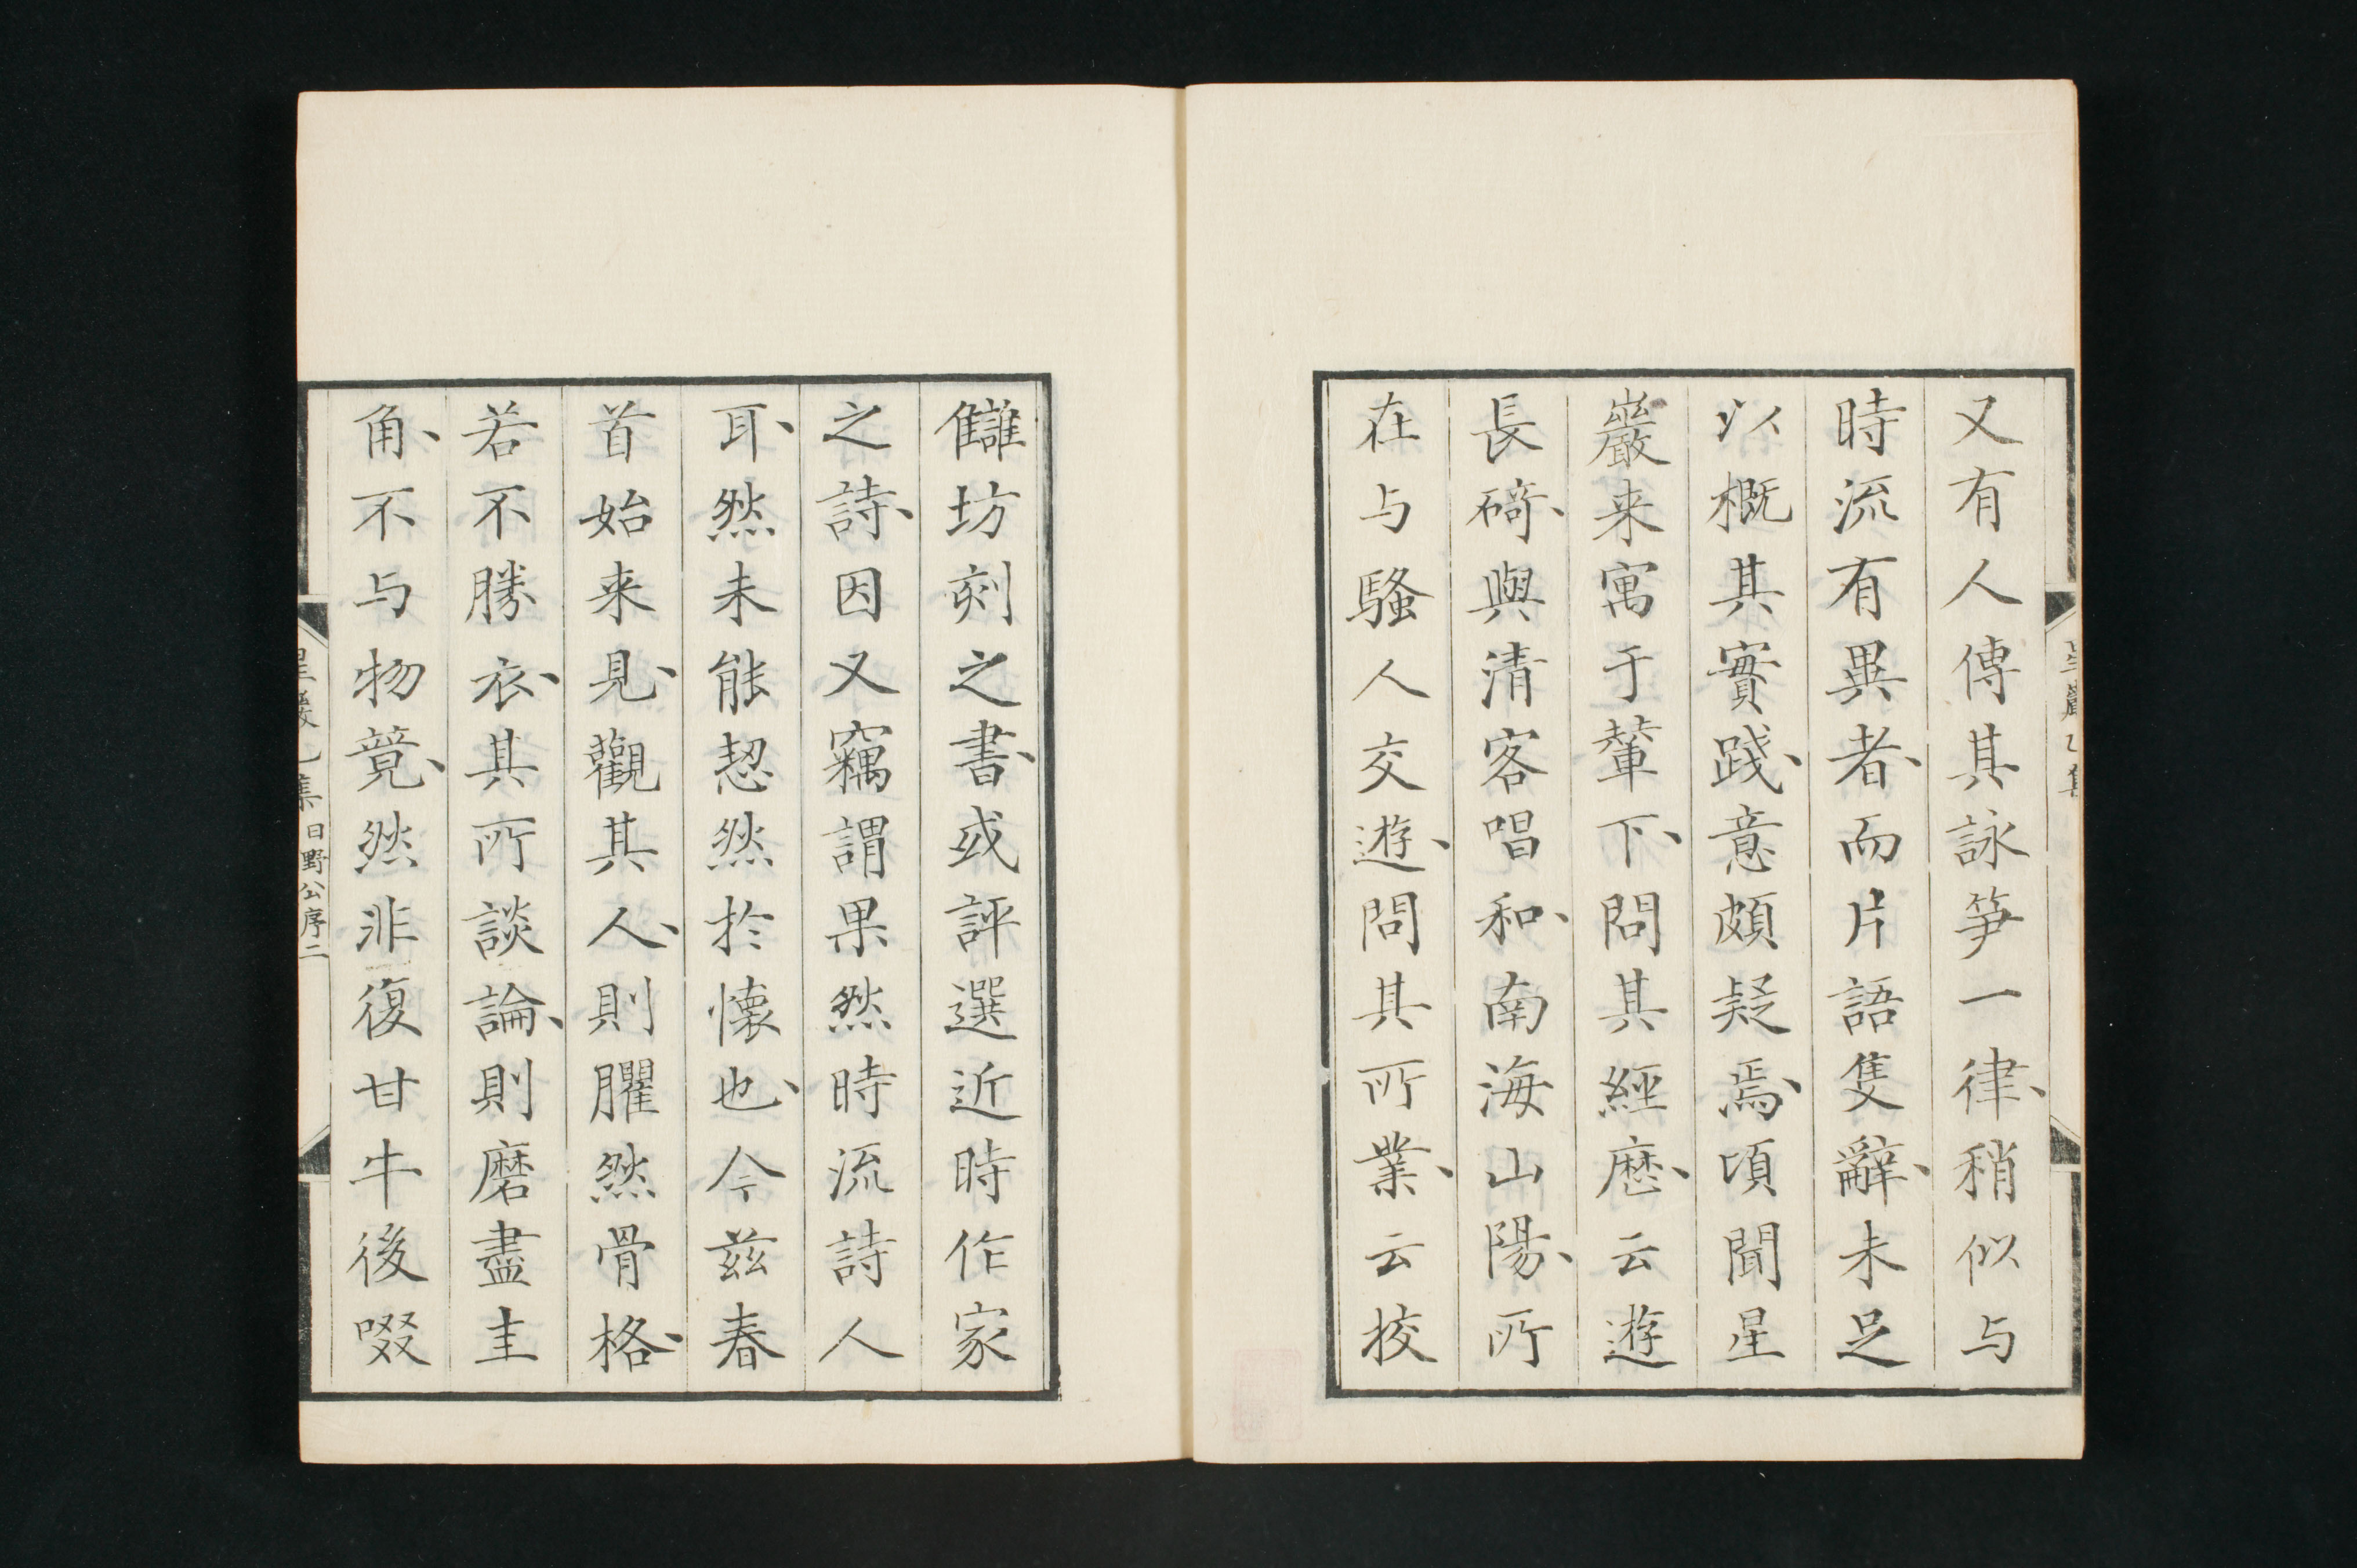 又有人傳其詠笋一律、稍似与
時流有異者、而片語隻辭、未足
以概其實踐、意頗疑焉、頃聞星
巖来寓于輦下、問其經歷、云遊
長碕、與清客唱和、南海山陽、所
在与騷人交遊、問其所業、云挍
讎坊刻之書、或評選近時作家
之詩、因又竊謂果然時流詩人
耳、然未能恝然於懷也、今茲春
首始来見、觀其人、則臞然骨格、
若不勝衣、其所談論、則磨盡圭
角、不与物競、然非復甘牛後啜
星巖乙集 日野公序二